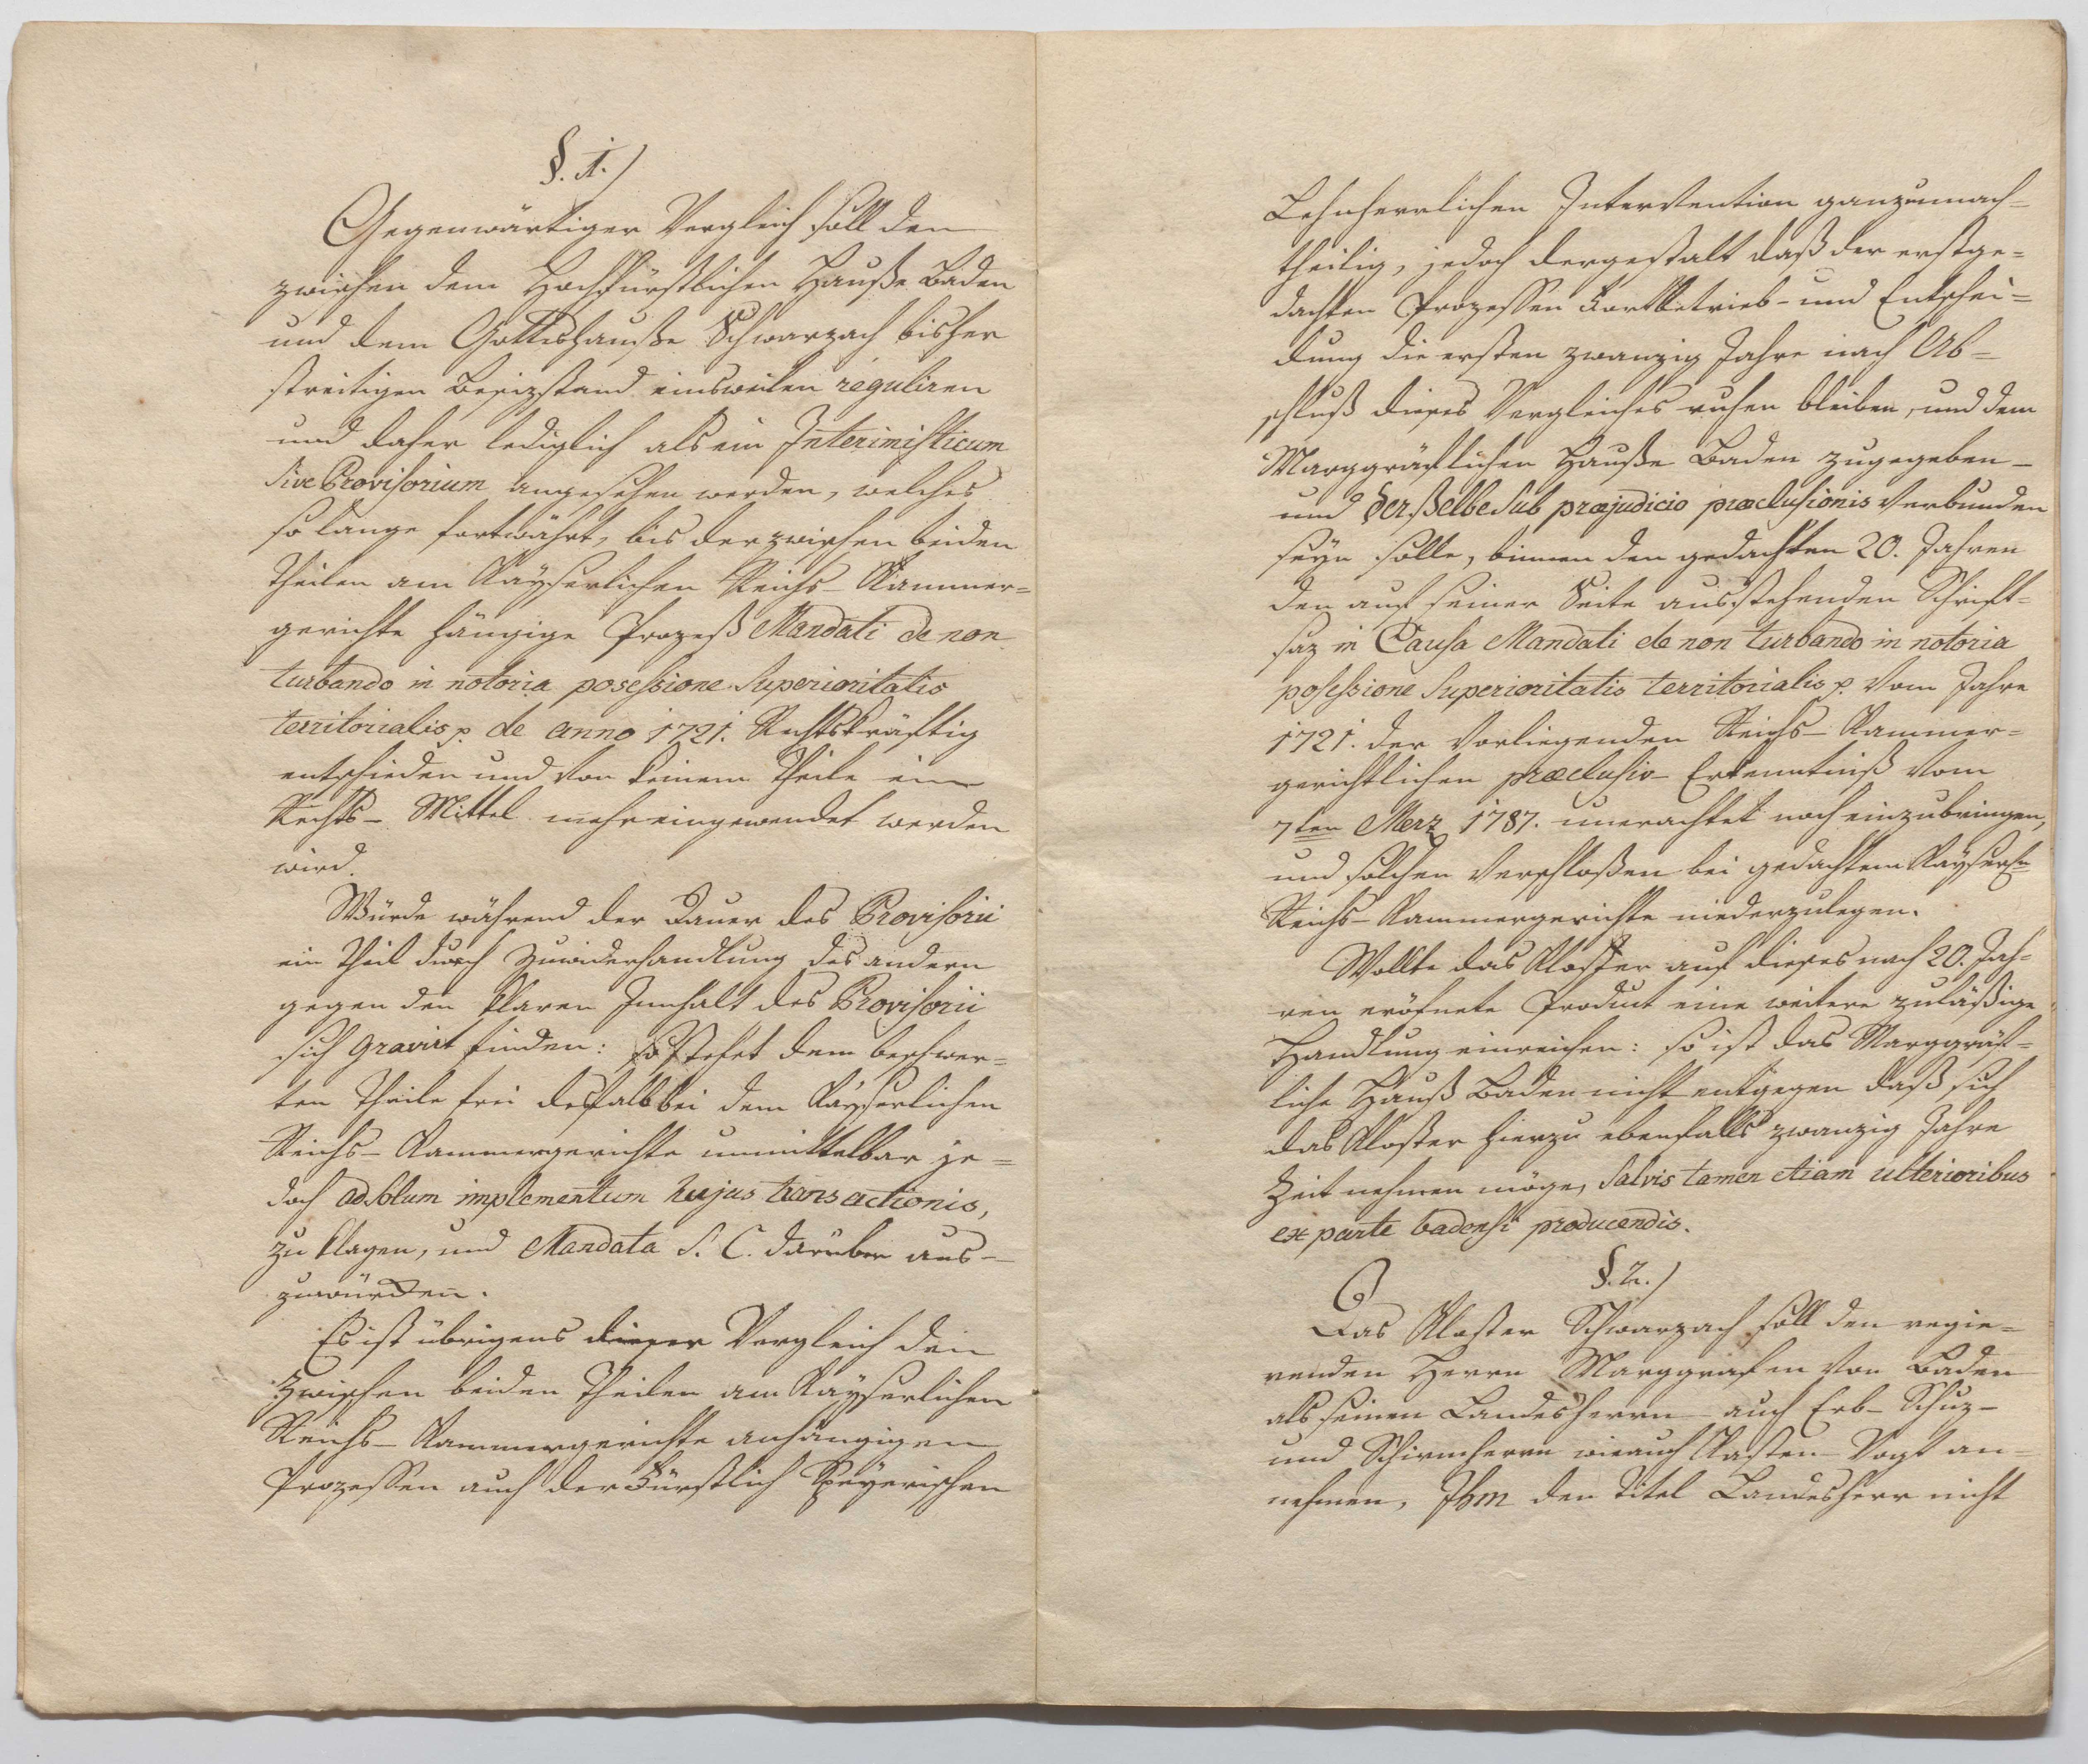 §. 1.)
Gegenwärtiger Vergleich soll den
zwischen dem Hochfürstlichen Hauße Baden
und dem Gotteshauße Schwarzach bisher
streitigen Besizstand einsweilen reguliren
und daher lediglich als ein Interimisticum
sive Provisorium angesehen werden, welches
so lange fortwährt, bis der zwischen beiden
Theilen am Kayserlichen Reichs-Kammer=
gerichte hängige Prozeß Mandati de non
turbando in notoria posessione Superioritatis
territorialis p. de anno 1721. Rechtskräftig
entschieden und von keinem Theile ein
Rechts-Mittel mehr eingewendet werden
wird.
Würde während der Dauer des Provisorii
ein Theil durch Zuwiderhandlung des andern
gegen den klaren Innhalt des Provisorii
sich gravirt finden: so stehet dem beschwer=
ten Theile frei deßhalb bei dem Kayserlichen
Reichs-Kammergerichte unmittelbar je=
doch ad solum implementum hujus transactionis,
zu klagen, und Mandata S. C. darüber aus-
zuwürken.
Es ist übrigens dieser Vergleich den
zwischen beiden Theilen am Kayserlichen
Reichs-Kammergerichte anhängigen
Prozessen auch der Fürstlich Speyerischen
Lehnherrlichen Intervention ganz unnach=
theilig, jedoch dergestalt daß der erstge=
dachten Prozessen Fortbetrieb- und Entschei=
dung die ersten zwanzig Jahre nach Ab=
schluß dieses Vergleiches ruhen bleiben, und dem
Marggräflichen Hauße Baden zugegeben-
und derßelbe sub præjudicio præclusionis verbunden
seyn solle, binnen den gedachten 20. Jahren
den auf seiner Seite ausstehenden Schrift-
saz in Causa Mandati de non turbando in notoria
possessione Superioritatis territorialis p. vom Jahre
1721. der vorliegenden Reichs-Kammer=
gerichtlichen præclusiv-Erkenntniß vom
7ten Merz 1787. unerachtet noch einzubringen,
und solchen verschloßen bei gedachtem Kayserln
Reichs-Kammergerichte niederzulegen.
Wollte das Kloster auf dieses nach 20. Jah=
ren eröfnete Product eine weitere zuläßige
Handlung einreichen: so ist das Marggräf=
liche Hauß Baden nicht entgegen daß sich
das Kloster hierzu ebenfalls zwanzig Jahre
Zeit nehmen möge, salvis tamen etiam ulterioribus
ex parte badensi producendis.
§. 2.)
Das Kloster Schwarzach soll den regie=
renden Herrn Marggrafen von Baden
als seinen Landesherrn auch Erb- Schuz-
und Schirmherrn wie auch Kasten-Vogt an=
nehmen, Ihm den Titel Landesherr nicht